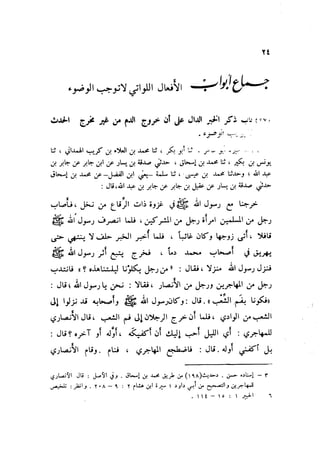 ٢٤
جماع أبواب الأفعال اللواتي لا توجب الوضوء
باب ذكر الخبر الدال على أن خروج الدم من غير مخرج الحدث
لا يوجب الوضوء .
أبو بكر ، نا محمد بن العلاء بن كريب الهمداني ، نا
يونس بن بكير ، نا محمد بن إسحاق ، حدثني صدقة بن يسار عن ابن جابر عن جابر بن
عبد الله ؛ وحدثنا محمد بن عيسى ، نا سلمة -يعني ابن الفضل- عن محمد بن إسحاق
حدثني صدقة بن يسار عن عقيل بن جابر عن جابر بن عبد الله ، قال :
خرجنا مع رسول الله ﷺ في غزوة ذات الرقاع من نخل ، فأصاب
رجل من المسلمين امرأة رجل من المشركين ، فلما انصرف رسول الله ﷺ
قافلا ، أتى زوجها وكان غائبا ، فلما أخبر الخبر حلف لا ينتهي حتى
يهريق في أصحاب محمد دما ، فخرج يتبع أثر رسول الله ﷺ
فنزل رسول الله ﷺ منزلا ، فقال : « من رجل يكلؤنا ليلتنا هذه ؟ » فانتدب
رجل من المهاجرين ورجل من الأنصار ، فقالا : نحن يا رسول الله ، قال :
«فكونا بفم الشعب» . قال : وكان رسول الله ﷺ وأصحابه قد نزلوا إلى
الشعب من الوادي ، فلما أن خرج الرجلان إلى فم الشعب ، قال الأنصاري
للمهاجري : أي الليل أحب إليك أن أكفيكه ، أوله أو آخره ؟ قال :
بل اكفني أوله . قال : فاضطجع المهاجري ، فنام . وقام الأنصاري
٣ - إسناده حسن . د حديث (١٩٨) من طريق محمد بن إسحاق . وفي الأصل : قال الأنصاري
للمهاجرين والتصحيح من أبي داود ؛ سيرة ابن هشام ٢ : ٢٠٨ - ٩ . وانظر : تلخيص
الحبير ١ : ١١٤ - ١٥
٦